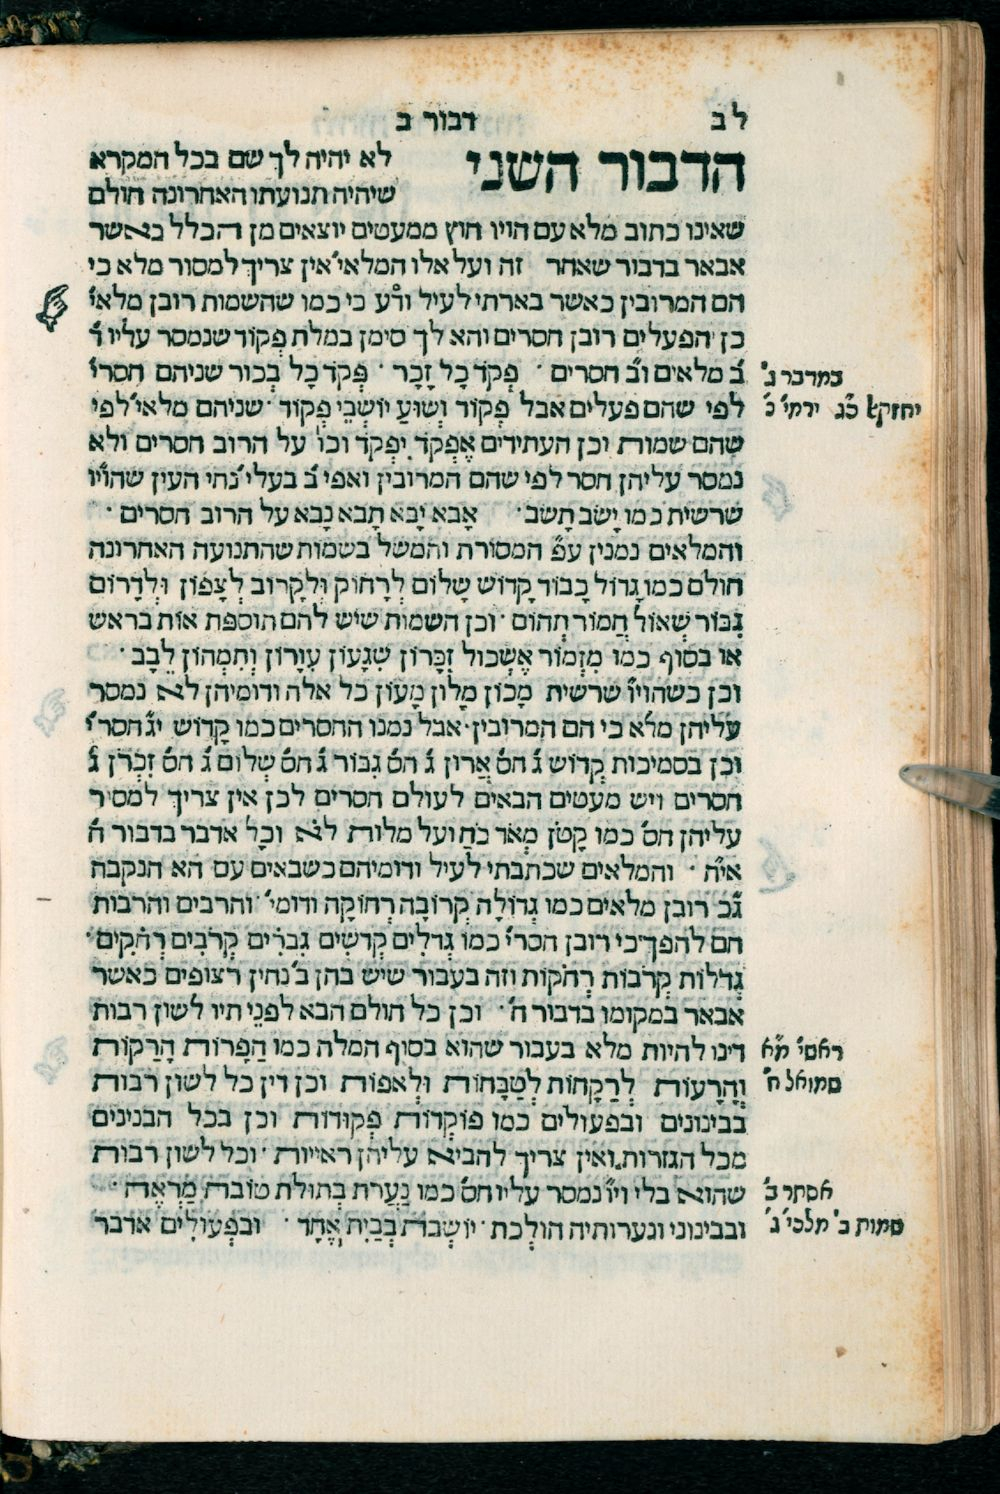 לב דבור ב
הדבור השני לא יהיה לך שם בכל המקרא
שיהיה תנועתו האחרונה חולם
שאינו כתוב מלא עם הויו חוץ ממעטים יוצאים מן הכלל כאשר
אבאר בדבור שאחר זה ועל אלו המלאי' אין צריך למסור מלא כי
הם המרובין כאשר בארתי לעיל ודע כי כמו שהשמות רובן מלאי'
כן הפעלים רובן חסרים והא לך סימן במלת פְקוֹד שנמסר עליו ד'
ב' מלאים וב' חסרים · פְקֹד כָל זָכָר · פְּקֹד כָל בְכור שניהם חסרי'
במדבר ג'
לפי שהם פעלים אבל פְקוֹד וְשׁוֹעַ יוֹשְׁבֵי פְקוֹד · שניהם מלאי' לפי
יחזקא כ"ג ירמי' נ'
שהם שמות וכן העתידים אֶפְקֹד יִפְקֹד וכו' על הרוב חסרים ולא
נמסר עליהן חסר לפי שהם המרובין ואפי' ב' בעלי נחי העין שהויו
שרשית כמו יָשֹב תָשֹב · אָבֹא יָבֹא תָבֹא נָבֹא על הרוב חסרים ·
והמלאים נמנין עפ"י המסורת והמשל בשמות שהתנועה האחרונה
חולם כמו גָדוֹל כָבוֹד קָדוֹשׁ שָלוֹם לְרָחוֹק וְלַקָרוֹב לְצָפוֹן וּלְדָרוֹם
גִבּוֹר שְׁאוֹל חֲמוֹר תְהוֹם · וכן השמות שיש להם תוספת אות בראש
או בסוף כמו מִזְמוֹר אֶשְׁכּוֹל זִכָּרוֹן שִׁגָעוֹן עִוָרוֹן וְתִמְהוֹן לֵבָב ·
וכן כשהוי"ו שרשית מָכוֹן מָלוֹן מָעוֹן כל אלה ודומיהן לא נמסר
עליהן מלא כי הם המרובין · אבל נמנו החסרים כמו קָדוֹשׁ י"ג חסרי'
וכן בסמיכות קְדוֹשׁ ג' חס' אֲרוֹן ג' חס' גִבּוֹר ג' חס' שְׁלוֹם ג' חס' זִכְרֹן ג'
חסרים ויש מעטים הבאים לעולם חסרים לכן אין צריך למסיר
עליהן חס' כמו קָטֹן מְאֹד כֹחַ ועל מלות לֹא וכָל אדבר בדבור ה'
אי"ה · והמלאים שכתבתי לעיל ודומיהם כשבאים עם הא הנקבה
ג"כ רובן מלאים כמו גְדוֹלָה קְרוֹבָה רְחוֹקָה ודומי' · והרבים והרבות
הם להפך כי רובן חסרי' כמו גְדֹלִים קְדֹשִׁים גִבֹּרִים קְרֹבִים רְחֹקִים ·
גְדֹלוֹת קְרֹבוֹת רְחֹקוֹת וזה בעבור שיש בהן ב' נחין רצופים כאשר
אבאר במקומו בדבור ה' · וכן כל חולם הבא לפני תיו לשון רבות
דינו להיות מלא בעבור שהוא בסוף המלה כמו הַפָרוֹת הָרַקוֹת
ראשי' מ"א
וְהָרָעוֹת לְרַקָחוֹת לְטַבָּחוֹת וּלְאֹפוֹת וכן דין כל לשון רבות
שמואל ח'
בבינונים ובפעולים כמו פוֹקְדוֹת פְקוּדוֹת וכן בכל הבנינים
מכל הגזרות · ואין צריך להביא עליהן ראייות · וכל לשון רבות
שהוא בלי וי"ו נמסר עליו חס' כמו נַעֲרֹת בְתוּלֹת טוֹבֹת מַרְאֶה ·
אסתר ב'
ובבינוני ונערותיה הולְכֹת · יוֹשְׁבֹת בְבַיִת אֶחָד · ובפְעולִים אדבר
שמות ב' מלכי' ג'